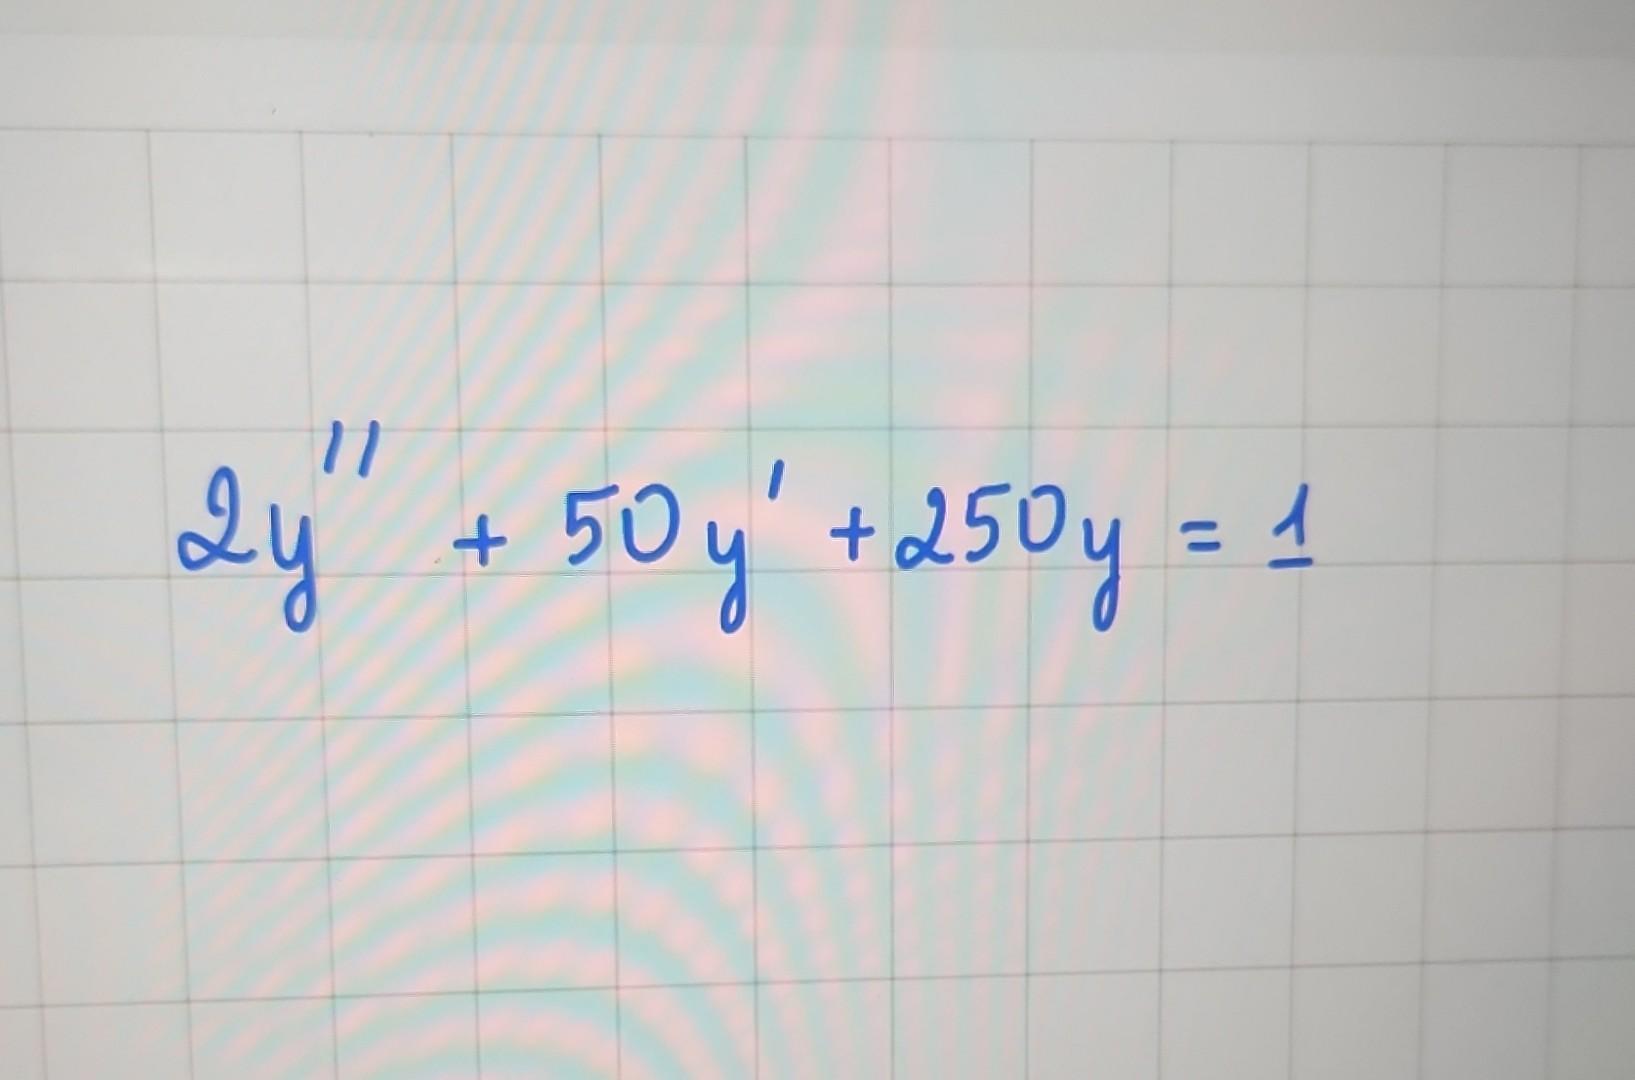 2y'' + 50y' + 250y = 1